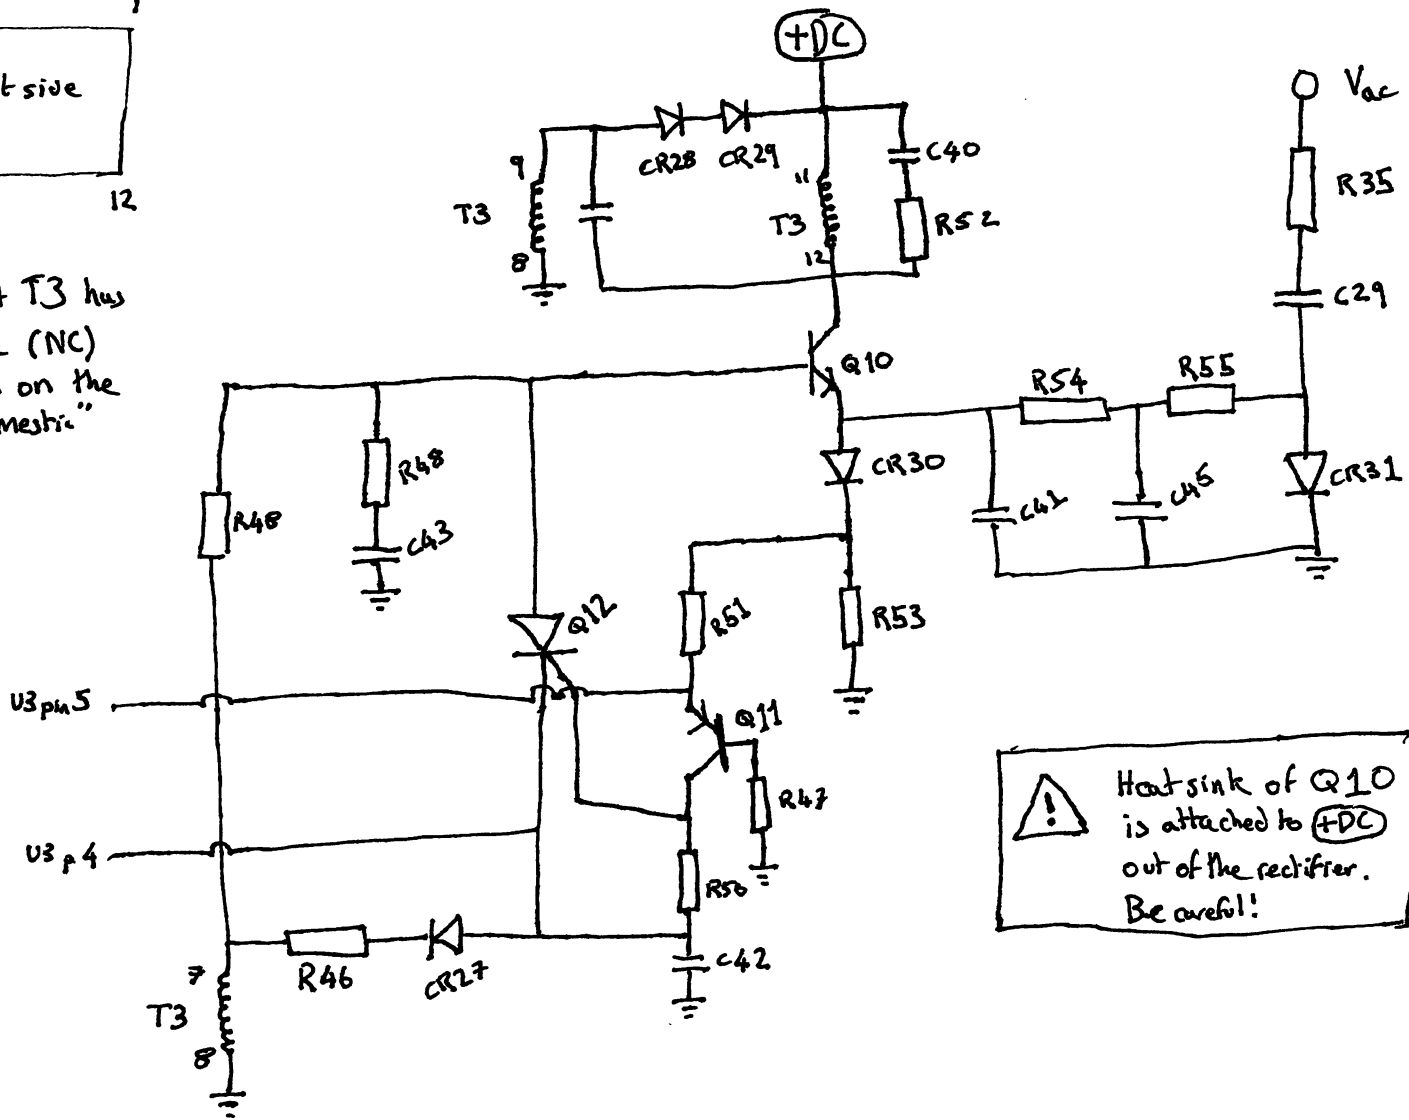 t side
12
T3 has
(NC)
on the
mestic"
+DC
9
T3
8
CR28
CR29
11
T3
12
C40
R52
Vac
R35
C29
Q10
R54
R55
CR30
CR31
C41
C45
R48
R48
C43
Q12
R51
R53
U3 pin 5
Q11
R47
U3 p 4
R50
R46
CR27
C42
7
T3
8
! Heatsink of Q10
is attached to +DC
out of the rectifier.
Be careful!